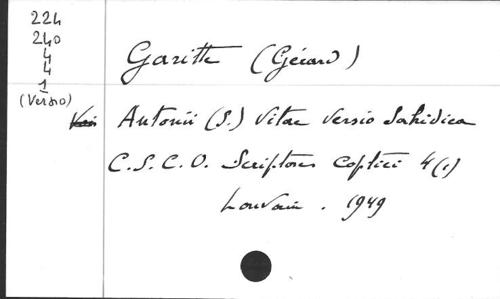 224
240
4
4
1
(Versio)
Garitte (Gérard)
Antonii (S.) Vitae versio sahidica
C.S.C.O. Scriptores Coptici 4(1)
Louvain. 1949